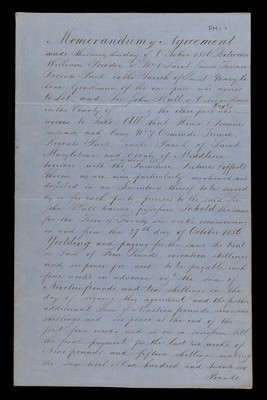 PM17
Memorandum of Agreement
made this day of October 1850 Between
William of No 1 Saint Terrace
Regents Park in the Parish of Saint Maryle
bone Gentleman of the one part who agrees
to let and Sir John Hall of
in the County of of the other part who
agrees to take All that House
and being No 7 Ormonde Terrace,
Regents Park in the Parish of Saint
Marylebone and County of Middlesex
together with the Furniture Fixtures & Effects
therein as are more particularly mentioned and
described in an Inventory thereof to be signed
by or for each party previous to the said Sir
John Hall taking possession To hold the same
for the Term of weeks commencing
in and from the 27th day of October 1850
Yielding and paying for the same the Rent
or Sum of Four Pounds, seventeen shillings
and sixpence per week to be payable each
four weeks in advance viz the sum of
Nineteen pounds and ten shillings on the
day of signing this agreement and the further
additional Sum of Nineteen pounds
shillings and at the end of the
first four weeks and so on in succession till
the final payment for the last two weeks of
Nine pounds and fifteen shillings making
the sum total of One hundred and twenty six
Pounds